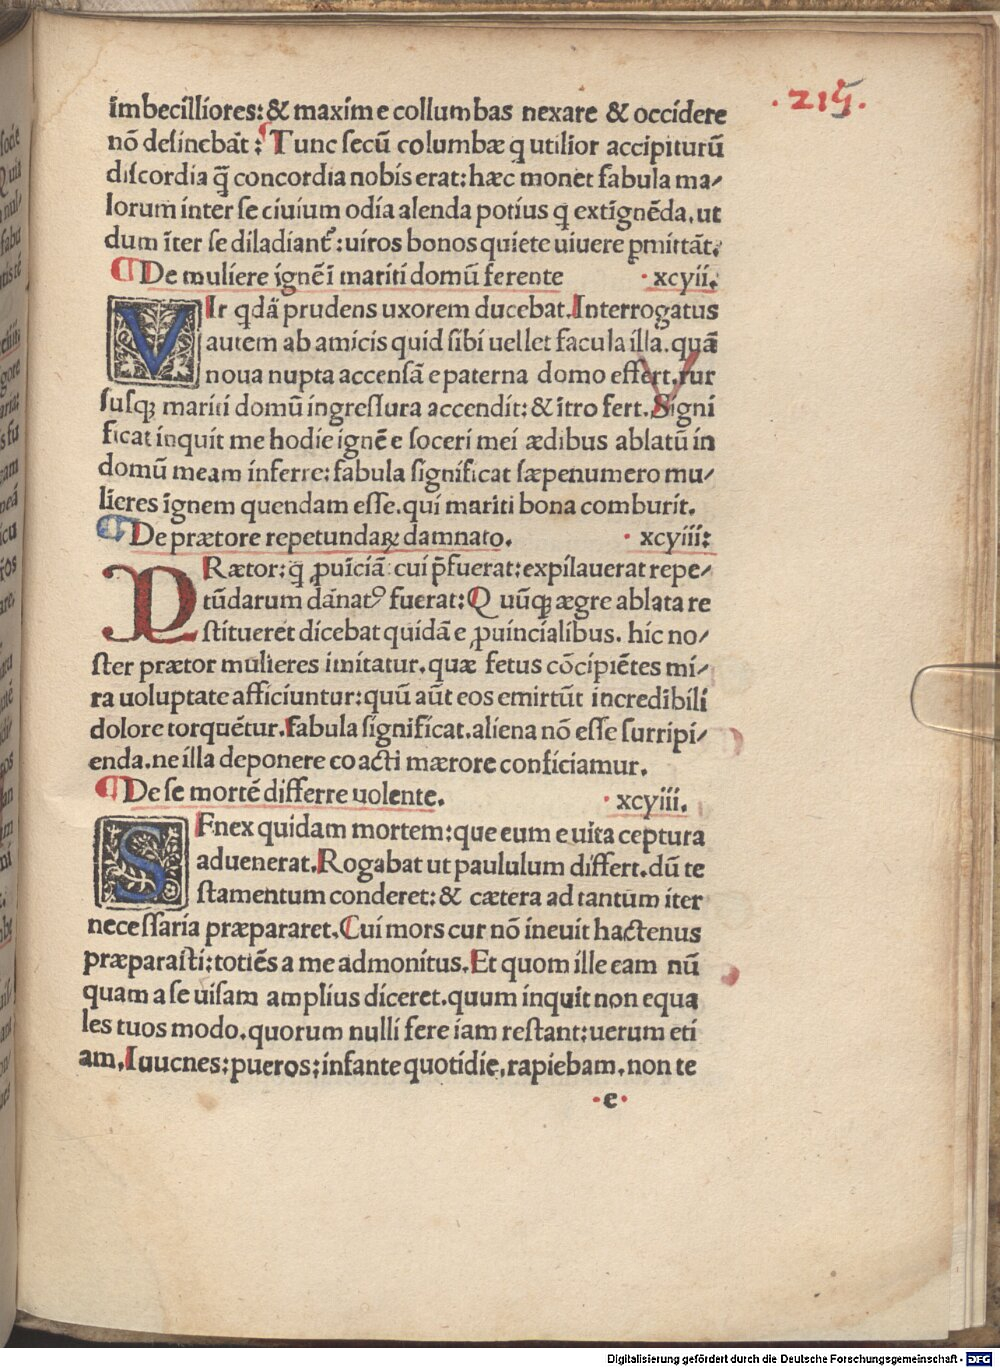 ·215·
imbecilliores: & maxime collumbas nexare & occidere
nō desinebāt: Tunc secū columbæ q utilior accipiturū
discordia q̄ concordia nobis erat: hæc monet fabula ma⸗
lorum inter se ciuium odia alenda potius q̄ extignēda. ut
dum īter se diladiant᷑: uiros bonos quiete uiuere ꝑmittāt.
¶ De muliere ignēī mariti domū ferente ·xcyii.
VIr qdā prudens uxorem ducebat. Interrogatus
autem ab amicis quid sibi uellet facula illa. quā
noua nupta accensā e paterna domo effert. rur
susqꝫ mariti domū ingressura accendit: & ītro fert. Signi
ficat inquit me hodie ignē e soceri mei ædibus ablatū in
domū meam inferre: fabula significat sæpenumero mu⸗
lieres īgnem quendam esse. qui mariti bona comburit.
¶ De prætore repetundaꝝ damnato. · xcyiii:
PRætor: q̄ ꝓuīciā cui p̄fuerat: expilauerat repe⸗
tūdarum dānatꝰ fuerat: Q uūqꝫ ægre ablata re
stitueret dicebat quidā e ꝓuincialibus. hic no⸗
ster prætor mulieres imitatur. quæ fetus cōcipiētes mi⸗
ra uoluptate afficiuntur: quū aūt eos emittūt incredibili
dolore torquētur. fabula significat. aliena nō esse surripi⸗
enda. ne illa deponere coacti mærore conficiamur.
¶ De se mortē differre uolente. · xcyiii.
SEnex quidam mortem: que eum e uita ceptura
aduenerat. Rogabat ut paululum differt. dū te
stamentum conderet: & cætera ad tantum iter
necessaria præpararet. Cui mors cur nō ineuit hactenus
præparasti: totiēs a me admonitus. Et quom ille eam nū
quam a se uisam amplius diceret. quum inquit non equa
les tuos modo. quorum nulli fere iam restant: uerum eti
am. Iuucnes: pueros: infante quotidie. rapiebam. non te
·e·
Digitalisierung gefördert durch die Deutsche Forschungsgemeinschaft - DFG